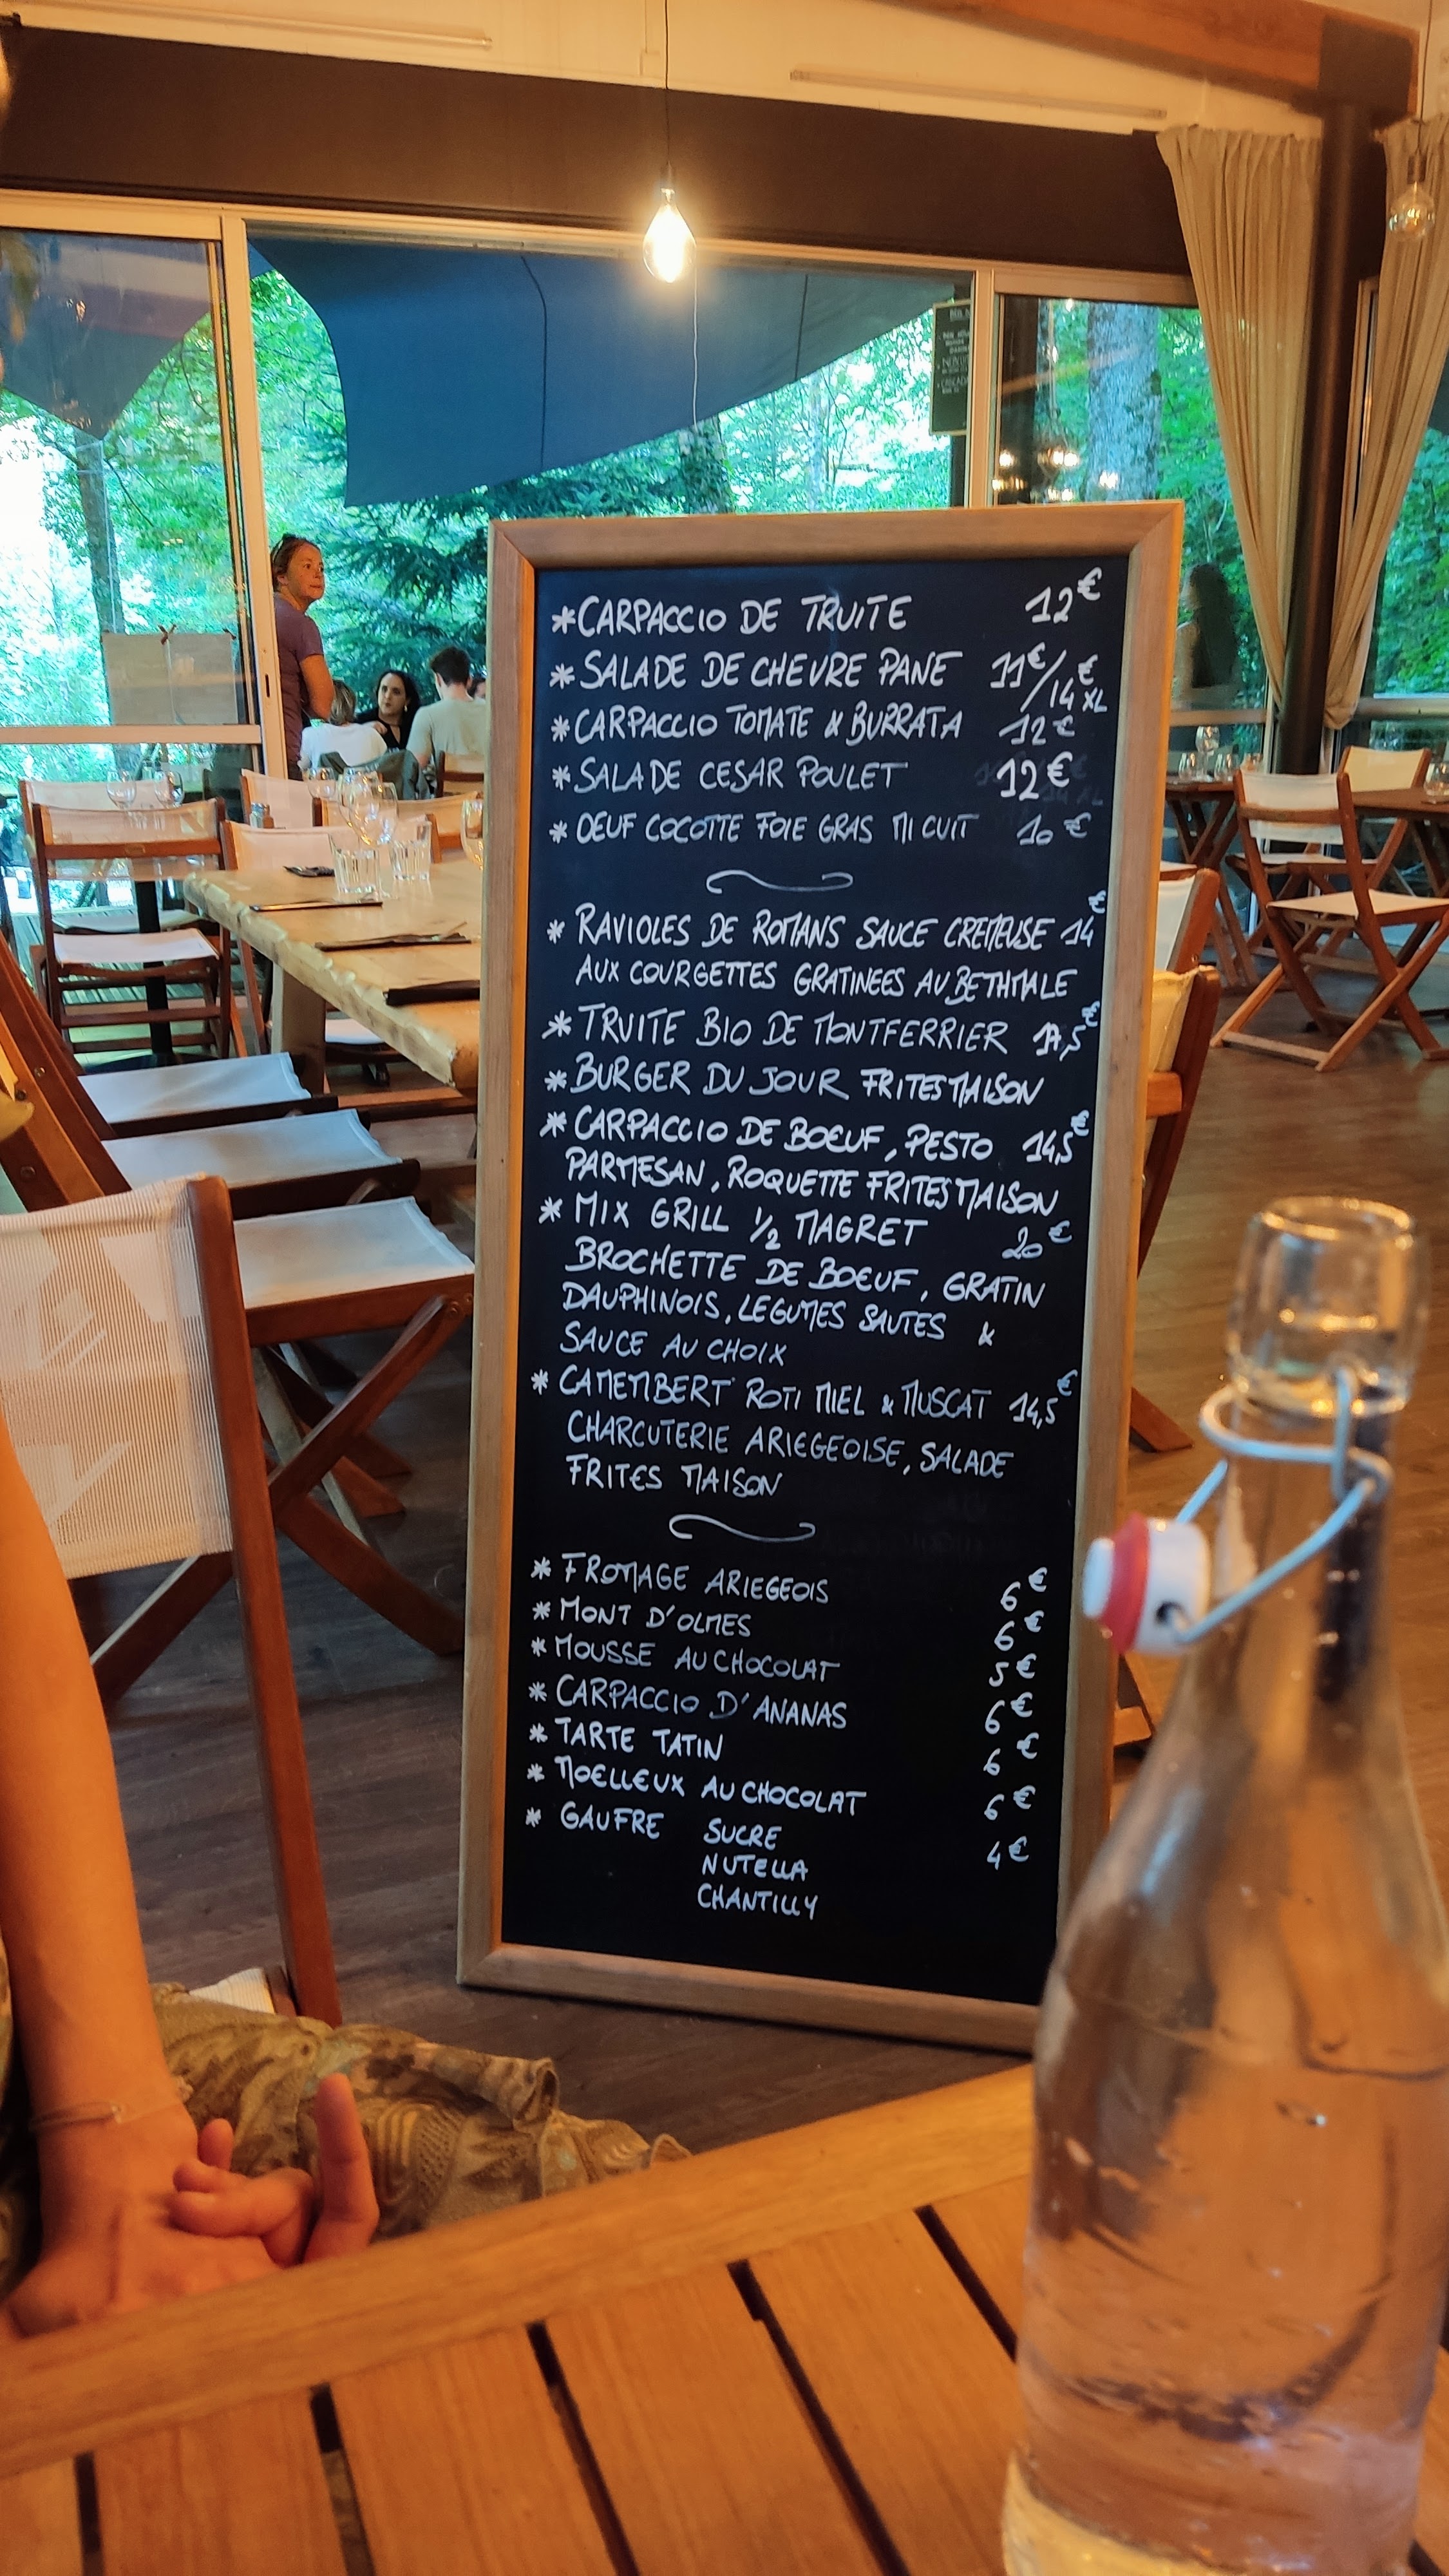 *CARPACCIO DE TRUITE 12€
*SALADE DE CHEVRE PANE 11€/14€ XL
*CARPACCIO TOMATE & BURRATA 12€
*SALADE CESAR POULET 12€
* OEUF COCOTTE FOIE GRAS MI CUIT 10€
* RAVIOLES DE ROMANS SAUCE CREMEUSE 14€
AUX COURGETTES GRATINEES AU BETHMALE
* TRUITE BIO DE MONTFERRIER 17,5€
*BURGER DU JOUR FRITES MAISON
* CARPACCIO DE BOEUF, PESTO 14,5€
PARMESAN, ROQUETTE FRITES MAISON
* MIX GRILL 1/2 MAGRET 20€
BROCHETTE DE BOEUF, GRATIN
DAUPHINOIS, LEGUMES SAUTES &
SAUCE AU CHOIX
* CAMEMBERT ROTI MIEL & MUSCAT 14,5€
CHARCUTERIE ARIEGEOISE, SALADE
FRITES MAISON
* FROMAGE ARIEGEOIS 6€
* MONT D'OLMES 6€
* MOUSSE AU CHOCOLAT 5€
* CARPACCIO D'ANANAS 6€
* TARTE TATIN 6€
* MOELLEUX AU CHOCOLAT 6€
* GAUFRE SUCRE 4€
NUTELLA
CHANTILLY